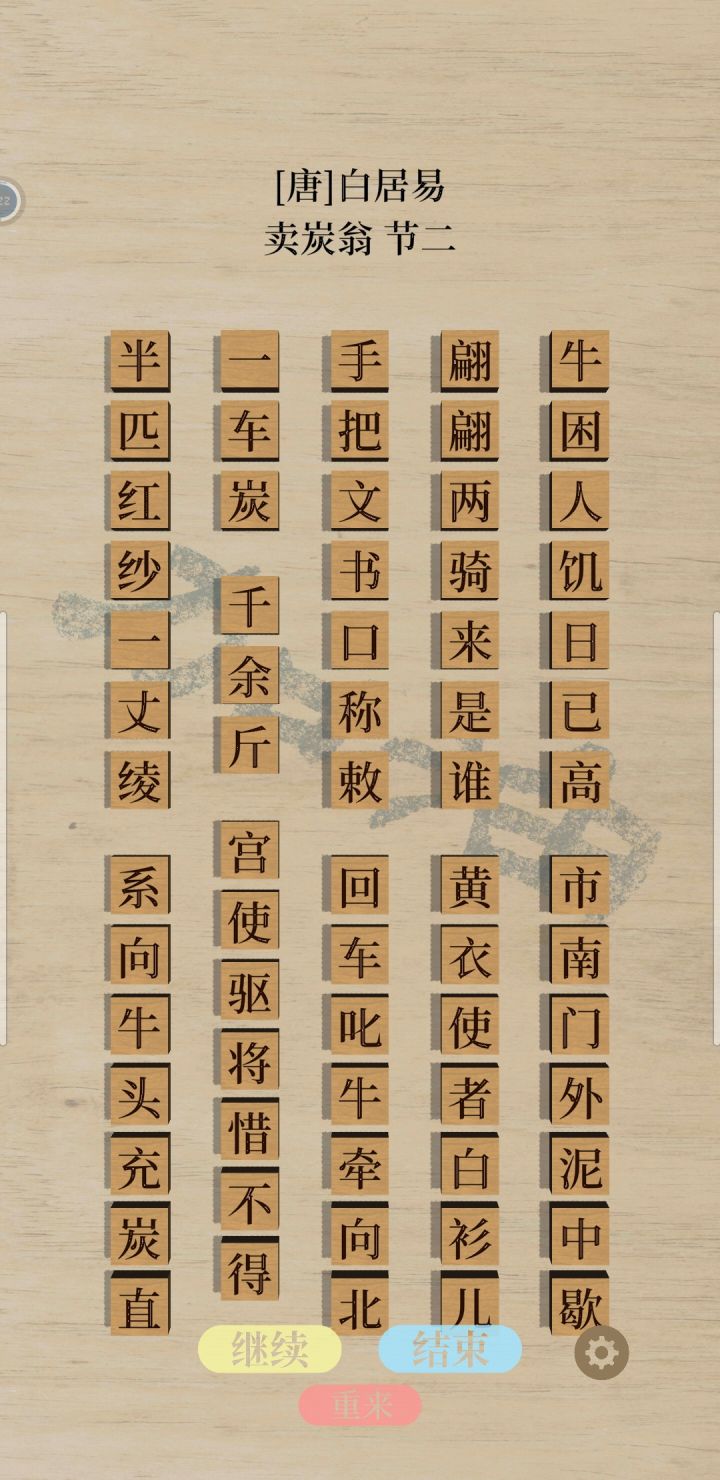 [唐]白居易
卖炭翁 节二
牛困人饥日已高
市南门外泥中歇
翩翩两骑来是谁
黄衣使者白衫儿
手把文书口称敕
回车叱牛牵向北
一车炭
千余斤
宫使驱将惜不得
半匹红纱一丈绫
系向牛头充炭直
继续
结束
重来